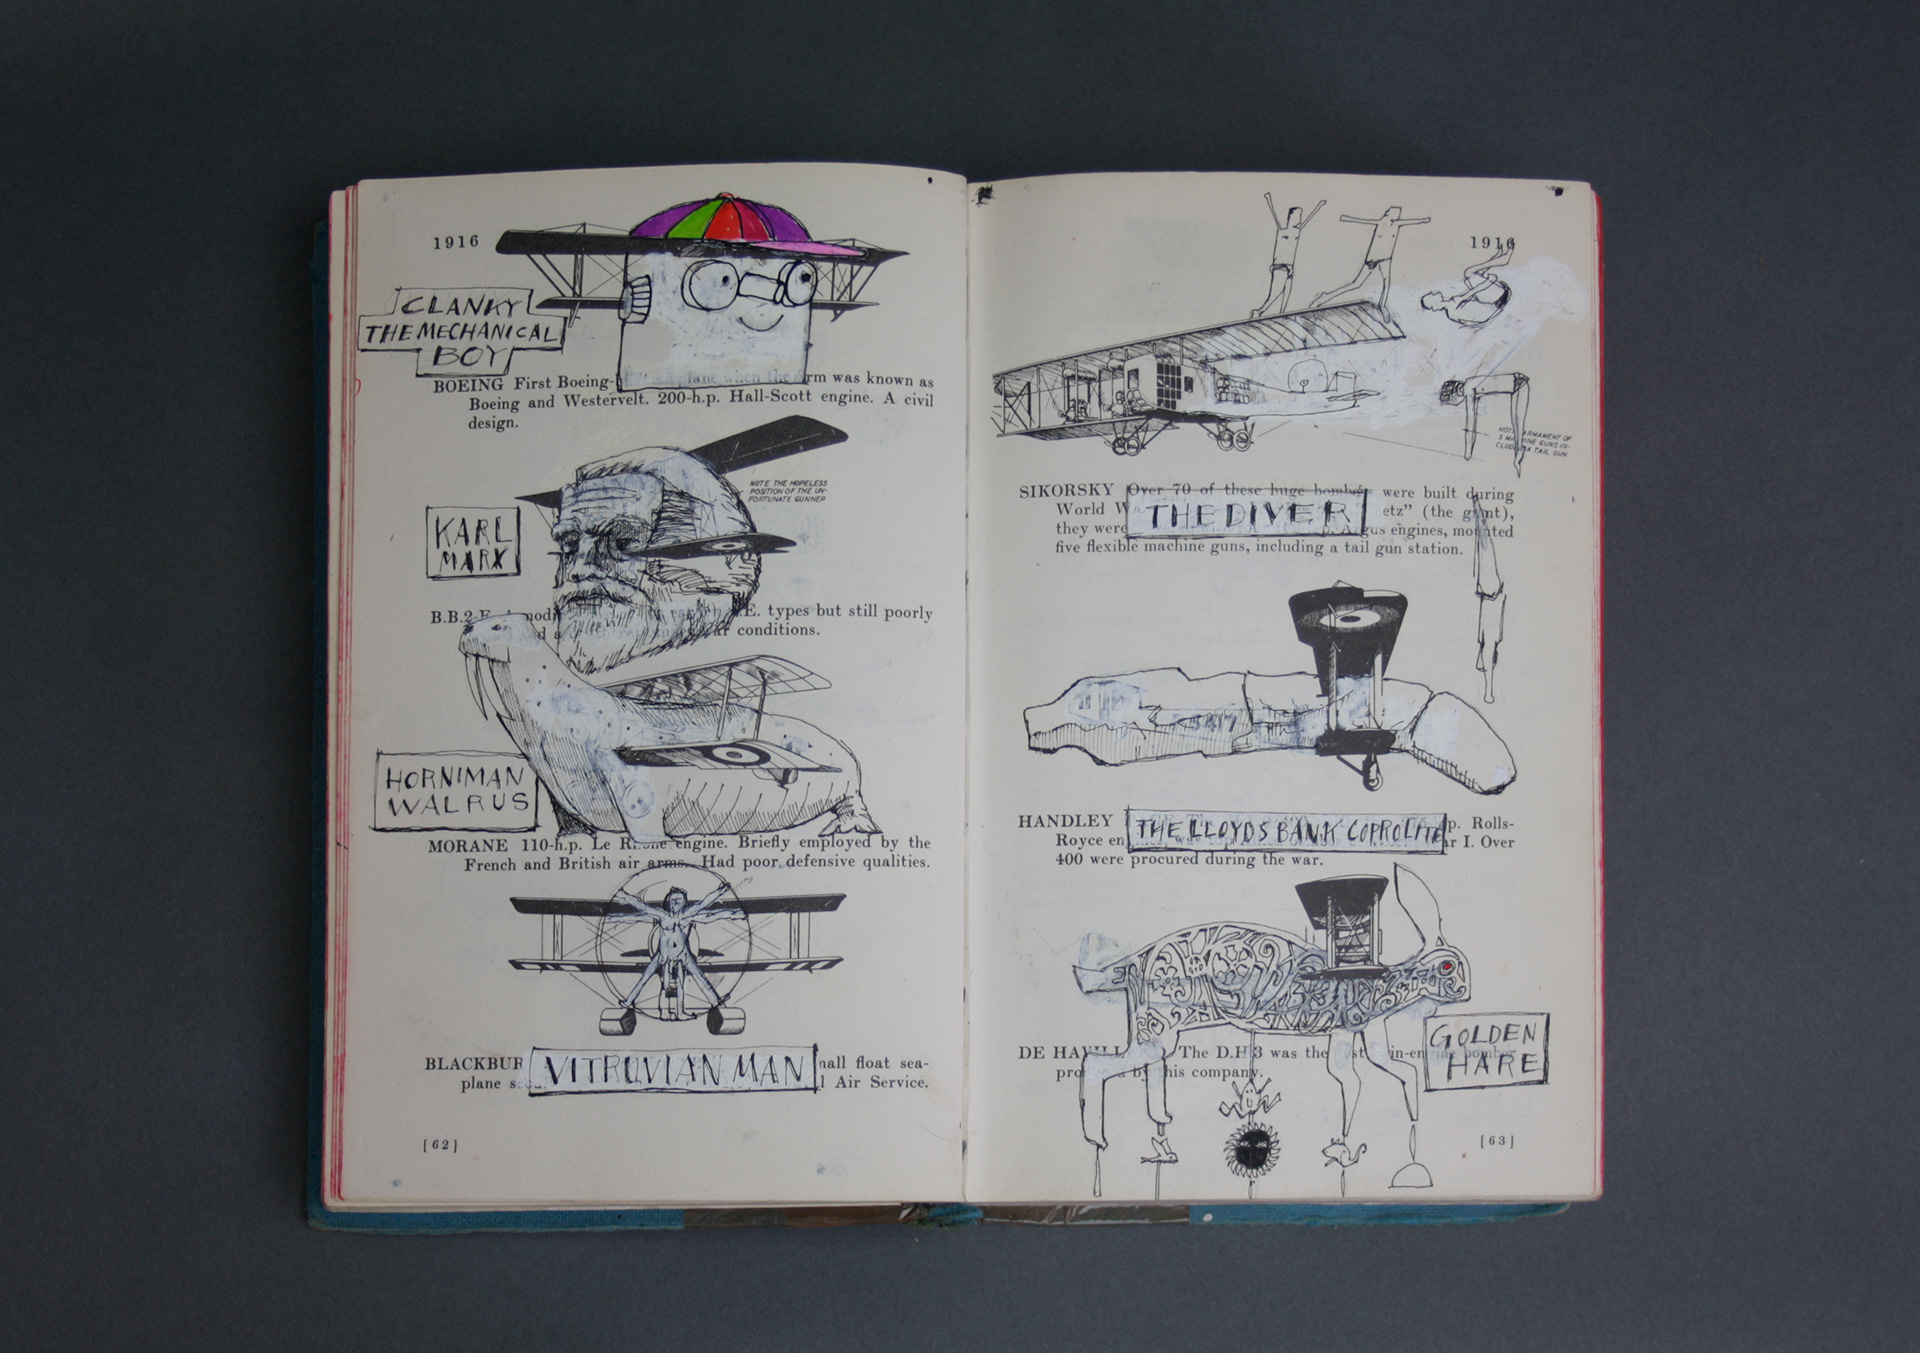 1916
CLANKY
THE MECHANICAL
BOY
BOEING First Boeing- plane when the rm was known as
Boeing and Westervelt. 200-h.p. Hall-Scott engine. A civil
design.
NOTE THE HOPELESS
POSITION OF THE UN-
FORTUNATE GUNNER
KARL
MARX
B.B.2 E. types but still poorly
conditions.
HORNIMAN
WALRUS
MORANE 110-h.p. Le Rhone engine. Briefly employed by the
French and British air arms. Had poor defensive qualities.
BLACKBUR mall float sea-
VITRUVIAN MAN
plane l Air Service.
[62]
1916
NOTE ARMAMENT OF
5 MACHINE GUNS IN-
CLUDING A TAIL GUN
SIKORSKY Over 70 of these huge bombers were built during
World W etz” (the giant),
THE DIVER
they were p. Argus engines, mounted
five flexible machine guns, including a tail gun station.
HANDLEY p. Rolls-
THE LLOYDS BANK COPROLITE
Royce en ar I. Over
400 were procured during the war.
GOLDEN
HARE
DE HAVILL The D.H 3 was the in-en bomber
by this company.
[63]